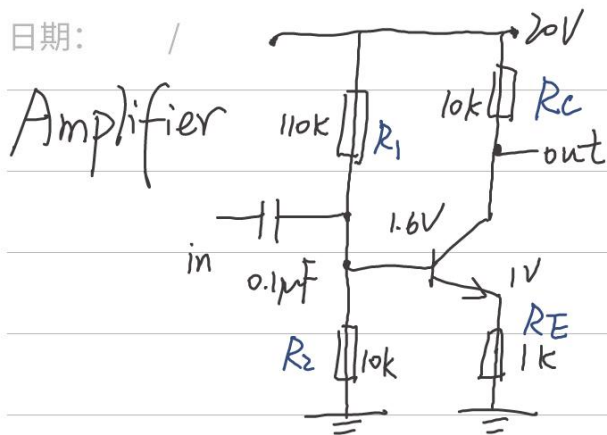 日期: /
20V
Amplifier
110k
R1
10k
RC
out
in
0.1μF
1.6V
1V
R2
10k
RE
1K